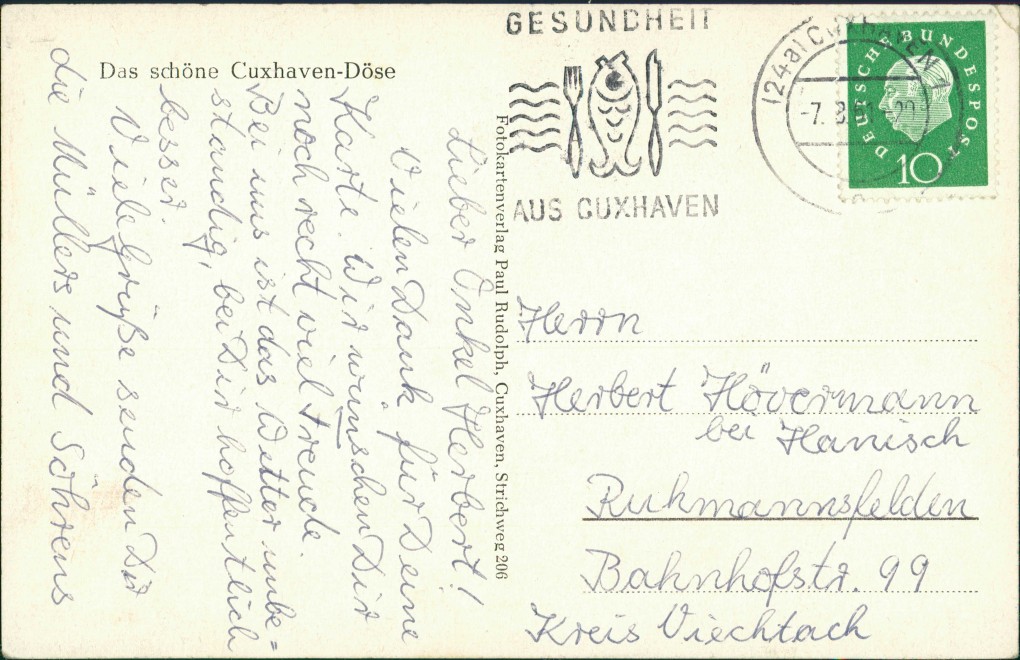 Das schöne Cuxhaven-Döse
Lieber Onkel Herbert!
Vielen Dank für Deine
Karte. Wir wünschen Dir
noch recht viel Freude.
Bei uns ist das Wetter unbe=
ständig, bei Dir hoffentlich
besser.
Viele Grüße senden Dir
die Müllers und Söhrens
Fotokartenverlag Paul Rudolph, Cuxhaven, Strichweg 206
GESUNDHEIT
AUS CUXHAVEN
(24a) CUXHAVEN 1
-7. 8.61-20
DEUTSCHE BUNDESPOST
10
Herrn
Herbert Hövermann
bei Hanisch
Ruhmannsfelden
Bahnhofstr. 99
Kreis Viechtach